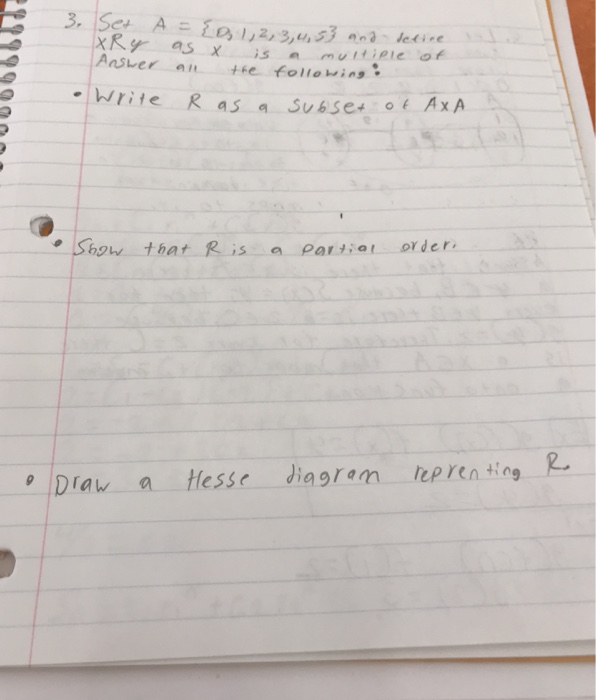 3. Set A = {0,1,2,3,4,5} and define
xRy as x is a multiple of
Answer all the following:
• Write R as a subset of AxA
• Show that R is a partial order.
• Draw a Hesse diagram reprenting R.